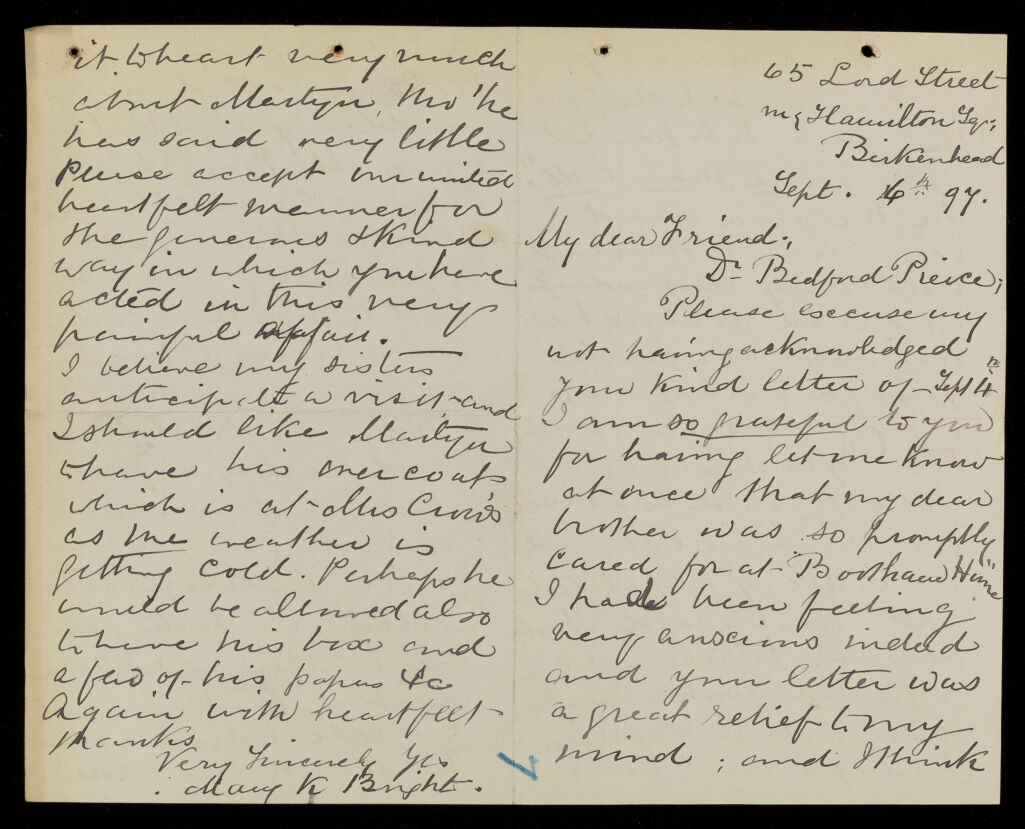 65 Lord Street
nr Hamilton Sqr,
Birkenhead
Sept. 6th 97.
My dear Friend,
Dr Bedford Pierce,
Please excuse my
not having acknowledged
your kind letter of Sept 4th
I am so grateful to you
for having let me know
at once that my dear
brother was so promptly
cared for at "Bootham Home"
I had been feeling
very anxious indeed
and your letter was
a great relief to my
mind; and I think
it to heart very much
about Martyn, tho' he
has said very little
Please accept our united
heartfelt manner for
the generous & kind
way in which you have
acted in this very
painful affair.
I believe my sisters
anticipate a visit and
I should like Martyn
to have his overcoat
which is at Mrs Crow's
as the weather is
getting cold. Perhaps he
would be allowed also
to have his box and
a few of his papers &c
Again with heartfelt
thanks
Very Sincerely Yrs
Mary K Bright.